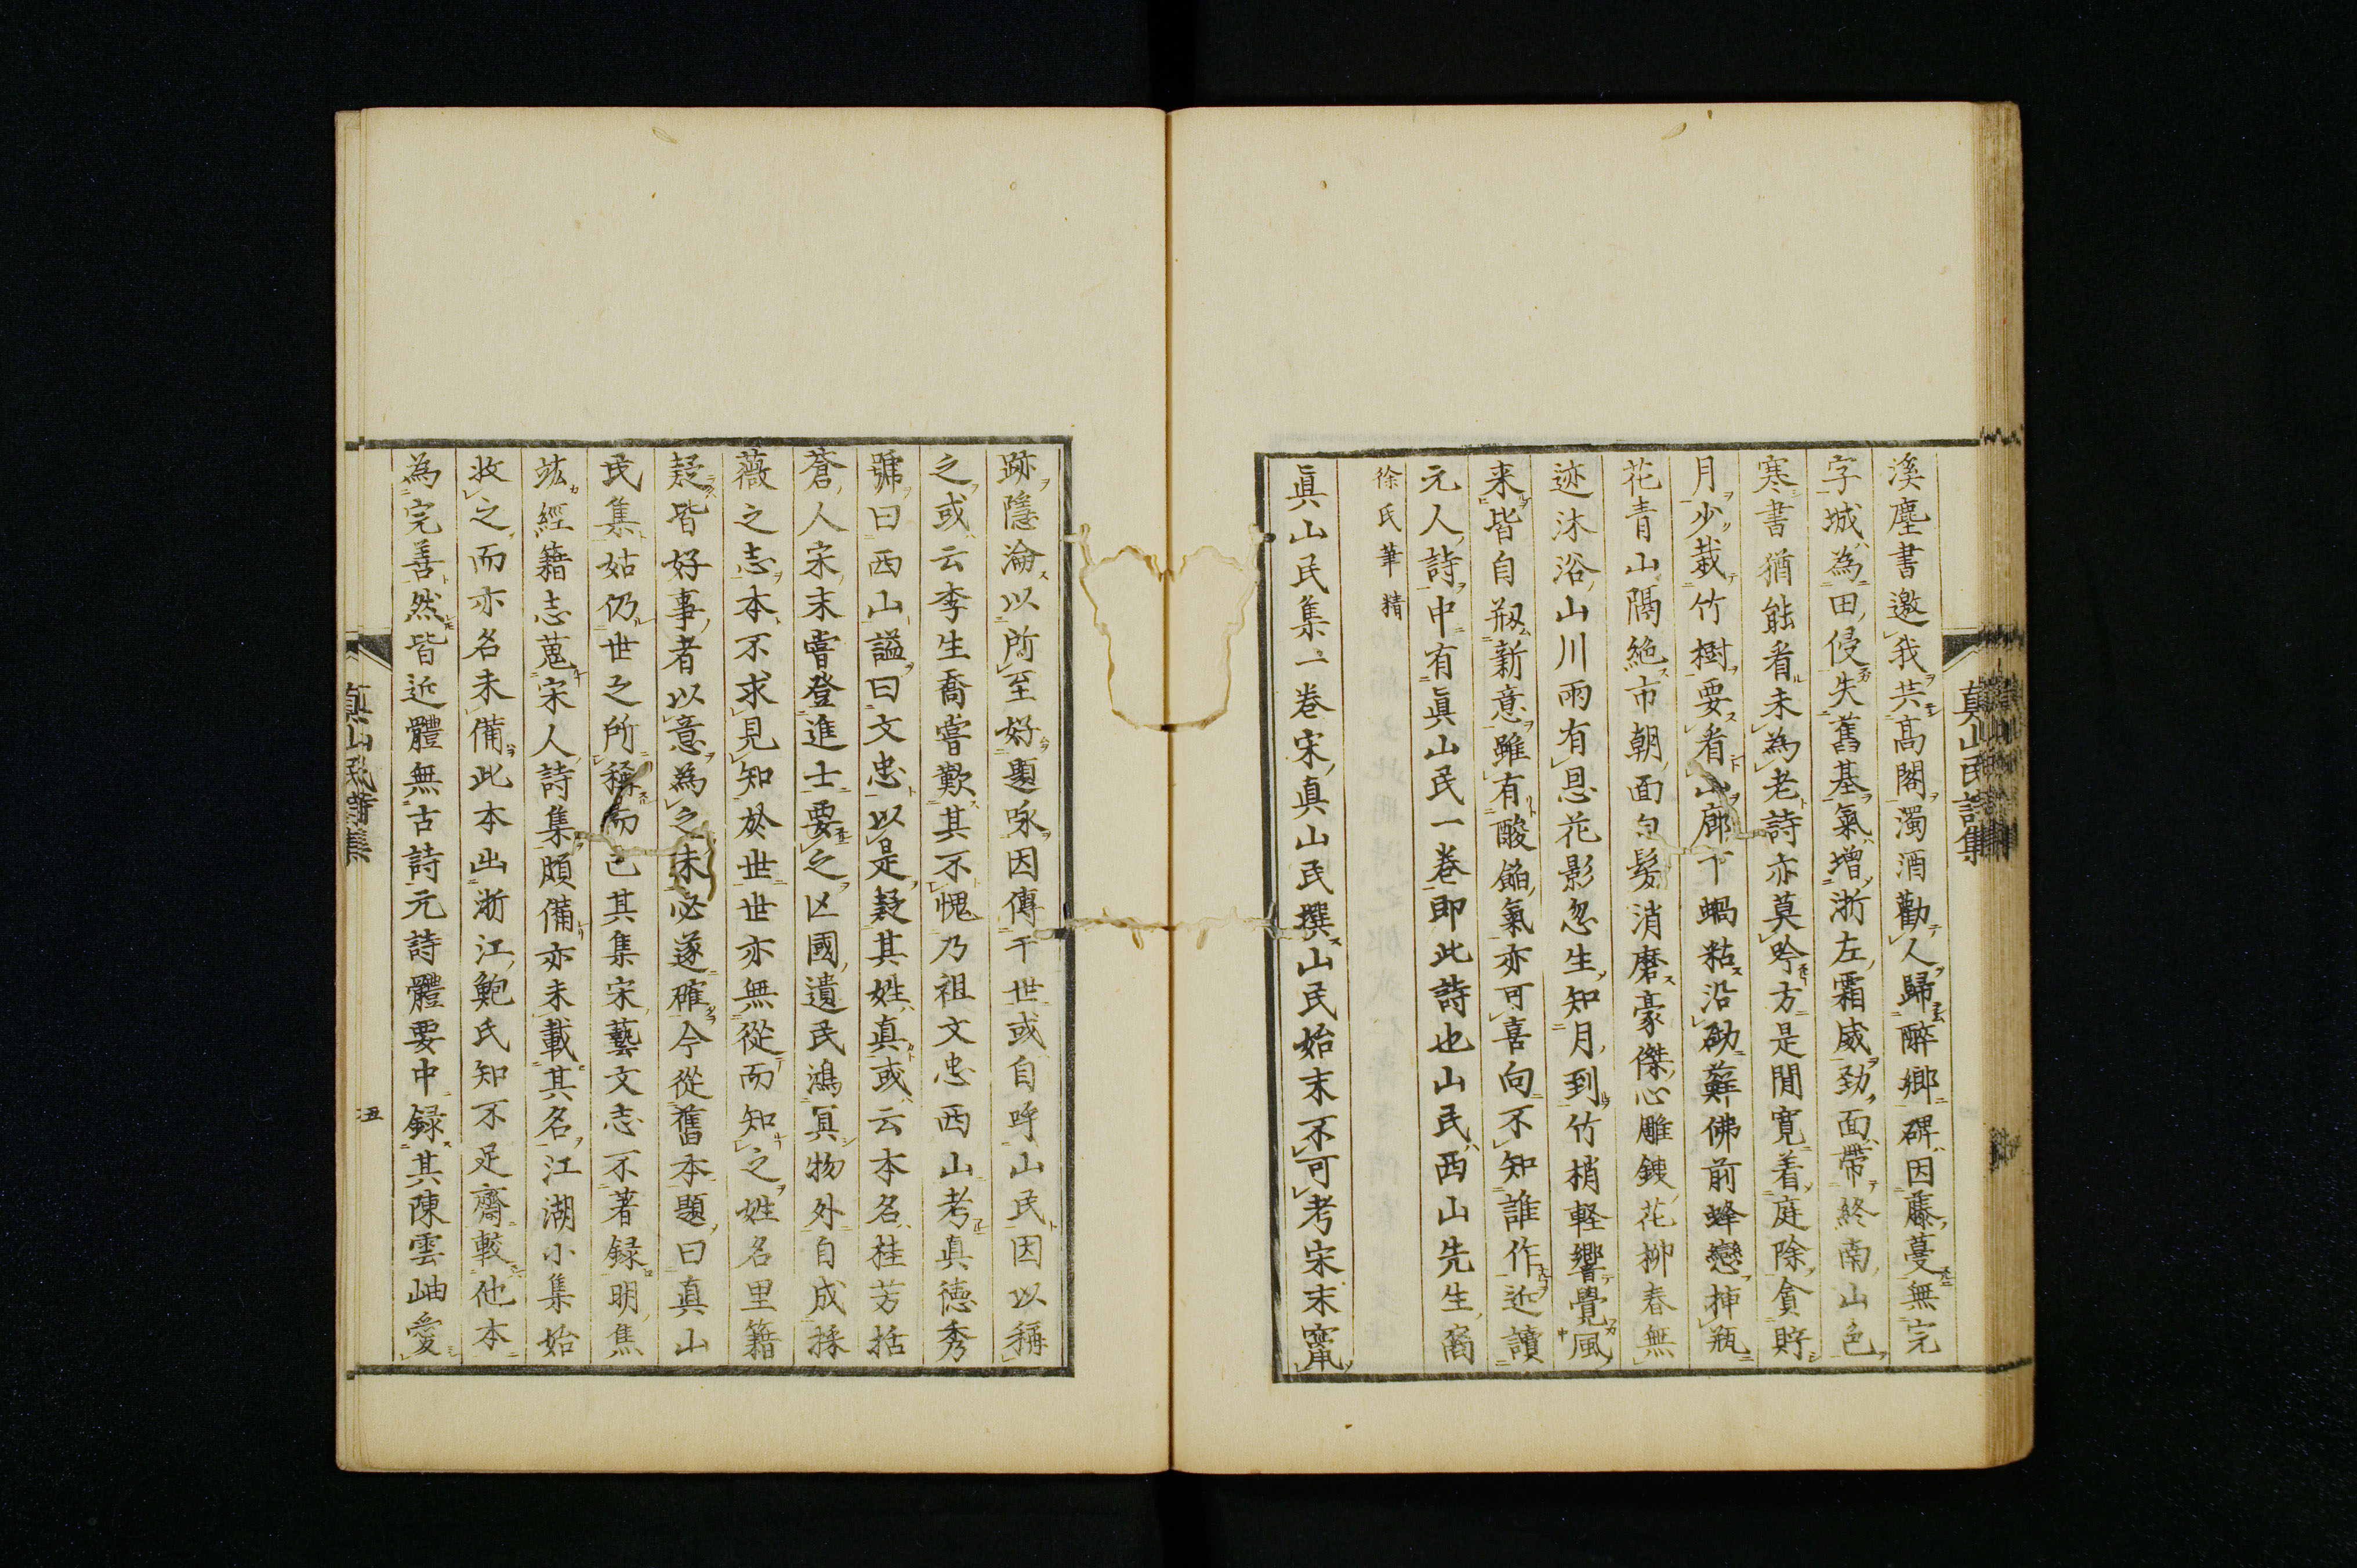 真山民詩集
溪塵書邀我共高閣濁酒勸人歸醉鄉碑因藤蔓無完
字城為田侵失舊基氣增浙左霜威勁面帶終南山色
寒書猶能看未為老詩亦莫吟方是閒寬着庭除貪貯
月少栽竹樹要看山廊下蝸粘沿砌蘚佛前蜂戀挿瓶
花青山隔絶市朝面白髮消磨豪傑心雕鍥花柳春無
迹沐浴山川雨有恩花影忽生知月到竹梢軽響覺風
来皆自剏新意雖有酸餡氣亦可喜向不知誰作近讀
元人詩中有眞山民一卷即此詩也山民西山先生裔
徐氏筆精
眞山民集一卷宋真山民撰山民始末不可考宋末竄
跡隱淪以所至好題咏因傳于世或自呼山民因以稱
之或云李生喬嘗歎其不愧乃祖文忠西山考真德秀
號曰西山謚曰文忠以是疑其姓真或云本名桂芳括
蒼人宋末嘗登進士要之亡國遺民鴻冥物外自成採
薇之志本不求見知於世世亦無從而知之姓名里籍
疑皆好事者以意為之未必遂確今從舊本題曰真山
民集姑仍世之所稱而已其集宋藝文志不著録明焦
竑經籍志蒐宋人詩集頗備亦未載其名江湖小集始
收之而亦名未備此本出浙江鮑氏知不足齋較他本
為完善然皆近體無古詩元詩體要中録其陳雲岫愛
真山民詩集
五